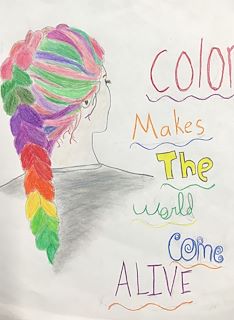 Color
Makes
The
World
Come
ALIVE